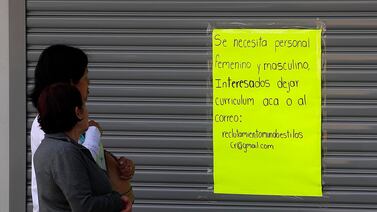 Se necesita personal
femenino y masculino.
Interesados dejar
curriculum aca o al
correo:
reclutamientomundoestilos
cr@gmail.com